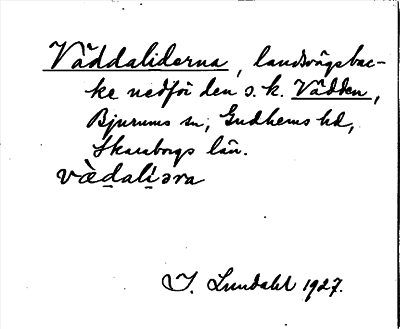 Väddaliderna, landsvägsbac-
ke nedför den s.k. Vädden,
Bjurums sn, Gudhems hd,
Skaraborgs län.
væ̀daliəra
J. Lundahl 1927.